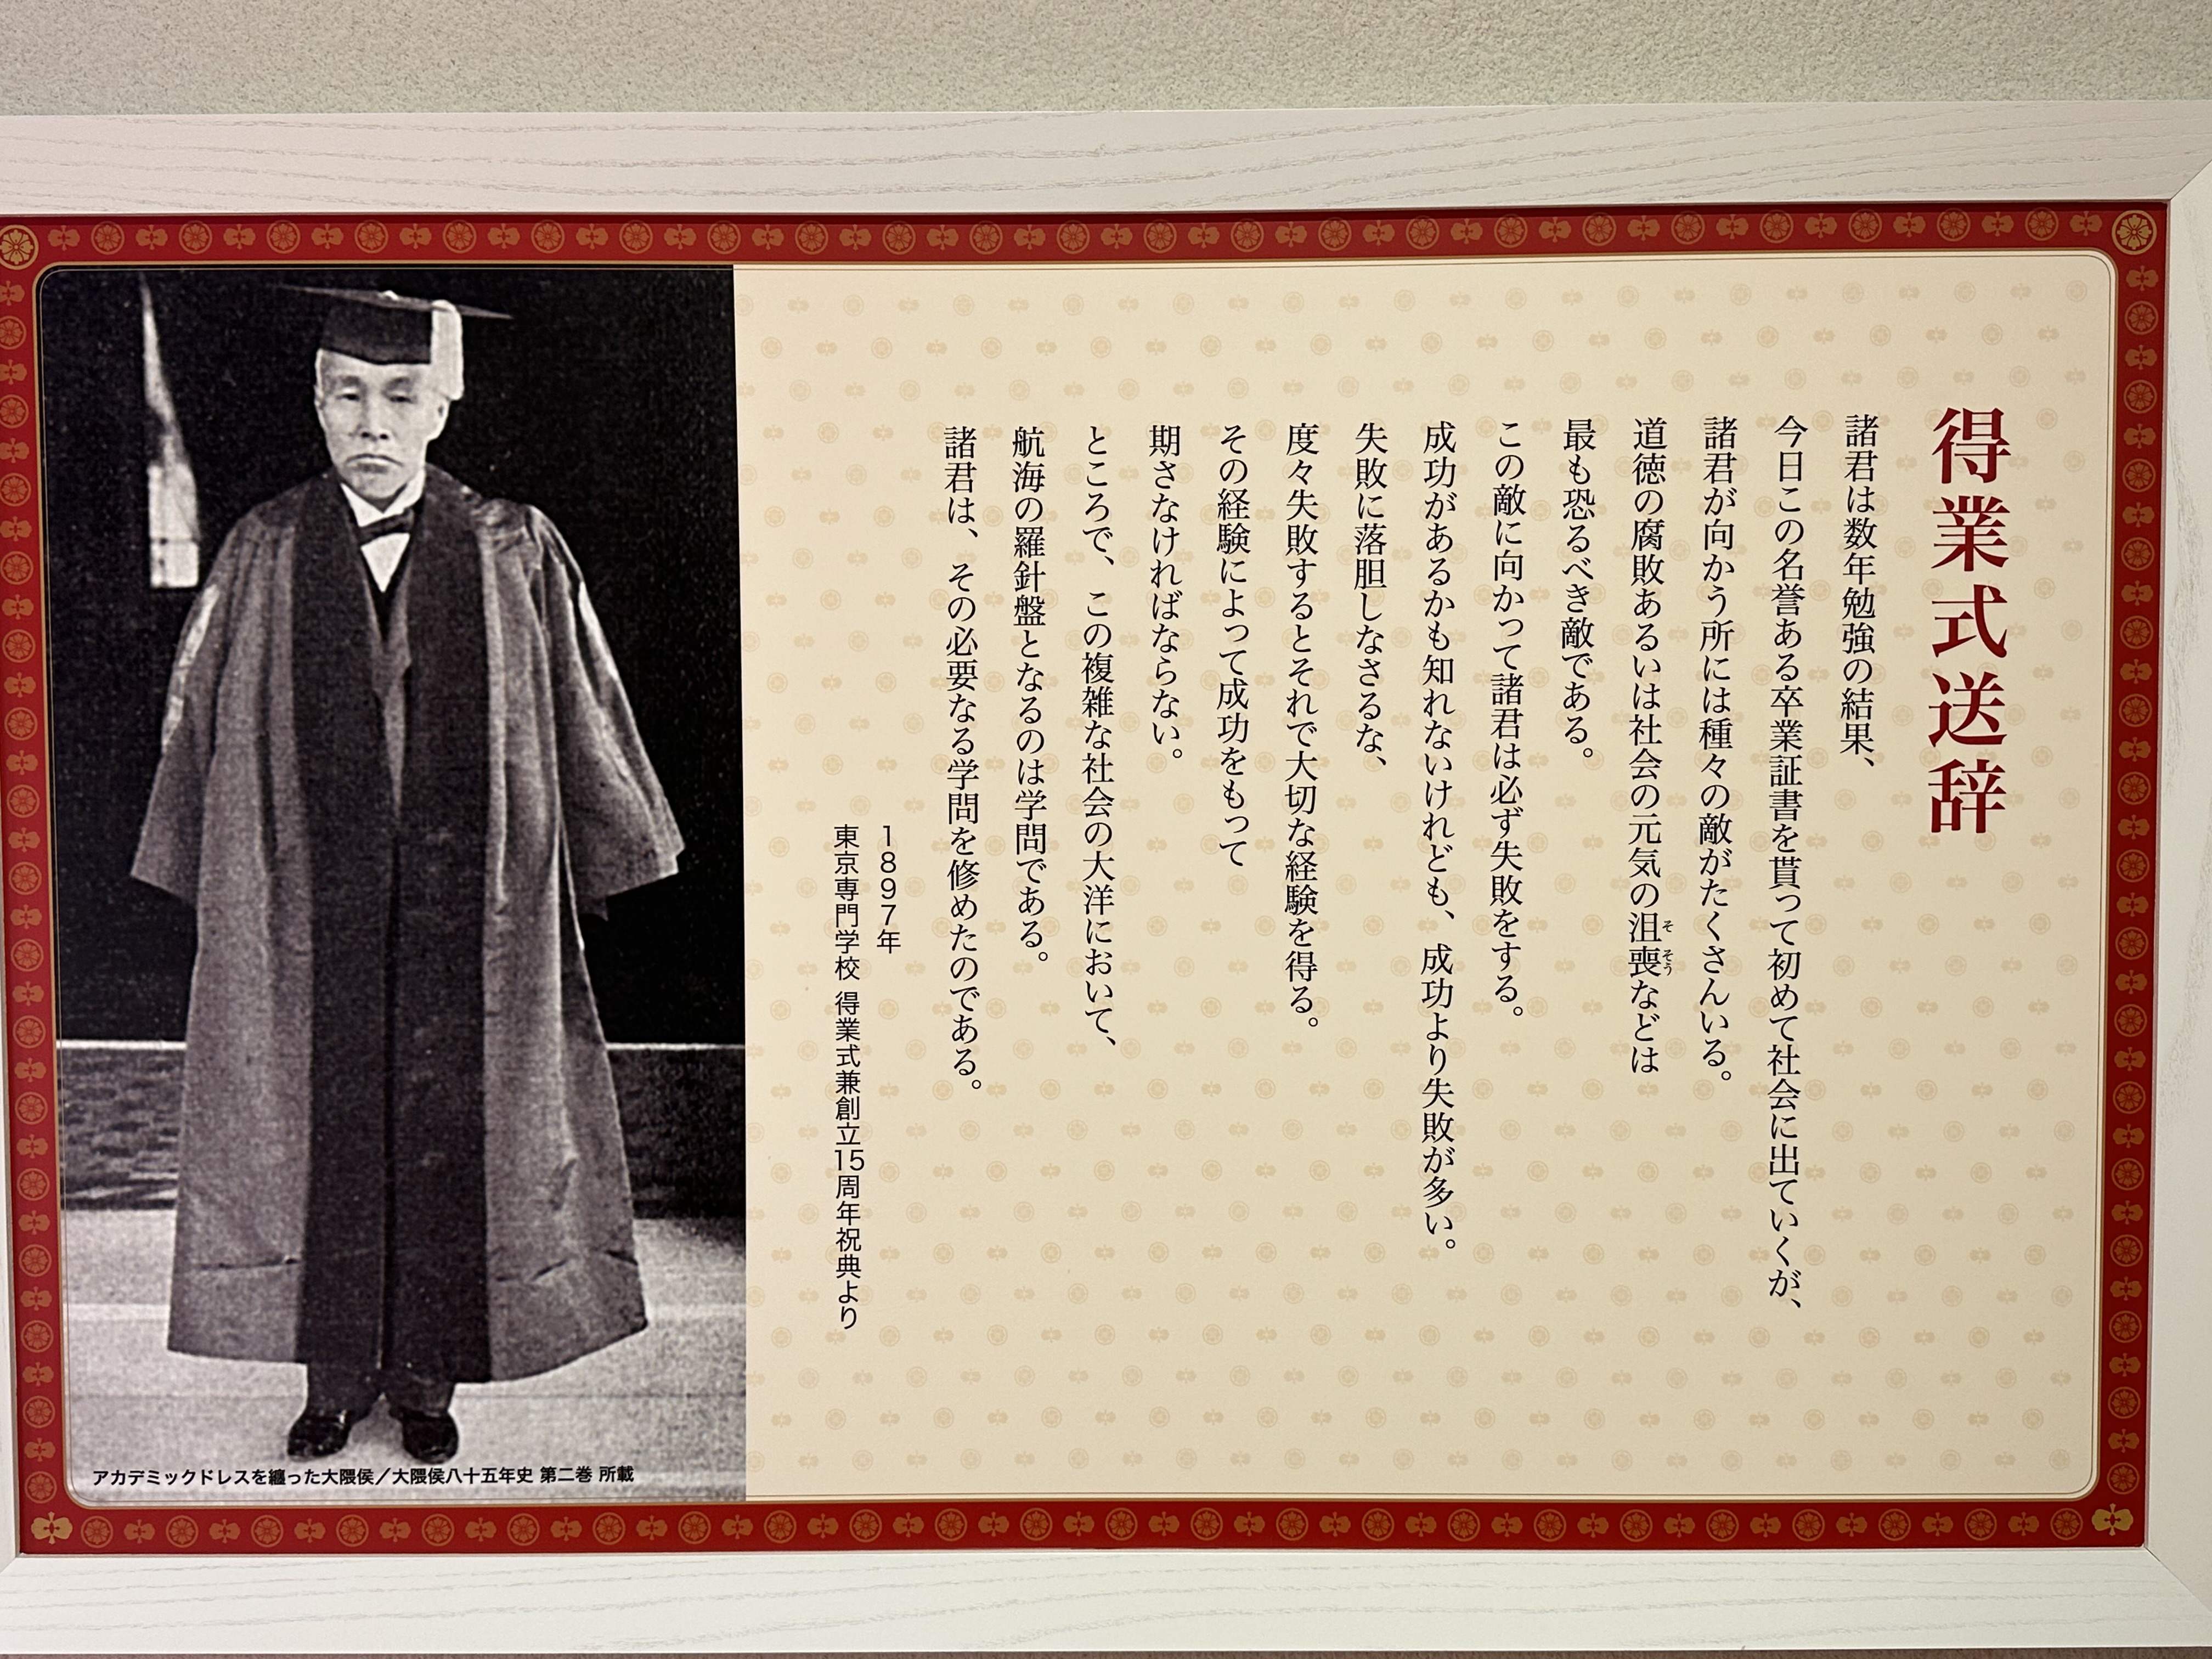 得業式送辞
諸君は数年勉強の結果、
今日この名誉ある卒業証書を貰って初めて社会に出ていくが、
諸君が向かう所には種々の敵がたくさんいる。
道徳の腐敗あるいは社会の元気の沮喪などは
そ そう
最も恐るべき敵である。
この敵に向かって諸君は必ず失敗をする。
成功があるかも知れないけれども、成功より失敗が多い。
失敗に落胆しなさるな、
度々失敗するとそれで大切な経験を得る。
その経験によって成功をもって
期さなければならない。
ところで、この複雑な社会の大洋において、
航海の羅針盤となるのは学問である。
諸君は、その必要なる学問を修めたのである。
1897年
東京専門学校 得業式兼創立15周年祝典より
アカデミックドレスを纏った大隈侯／大隈侯八十五年史 第二巻 所載